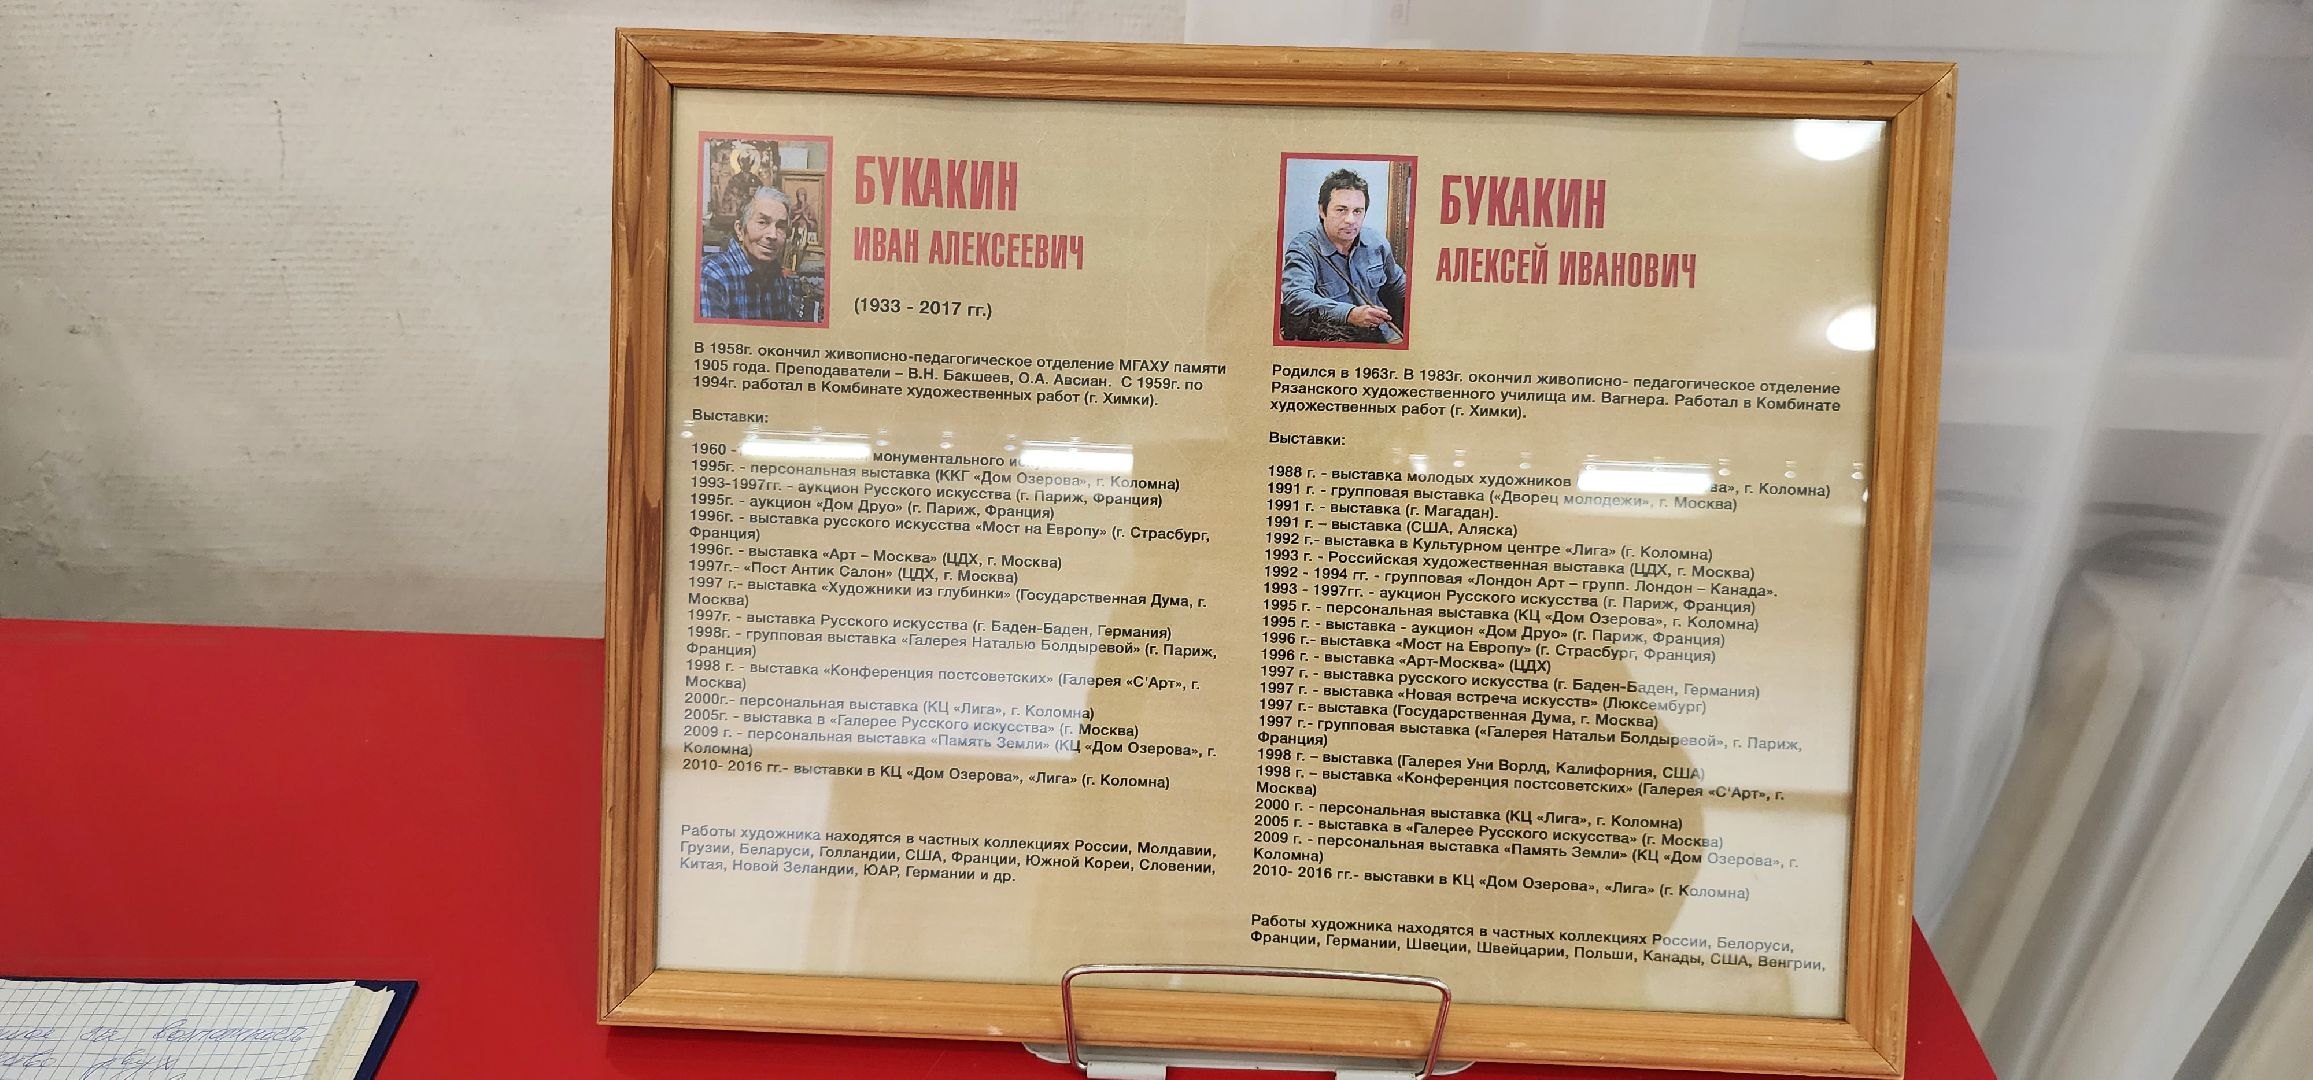 БУКАКИН
ИВАН АЛЕКСЕЕВИЧ
(1933 - 2017 гг.)
В 1958г. окончил живописно-педагогическое отделение МГАХУ памяти
1905 года. Преподаватели – В.Н. Бакшеев, О.А. Авсиан. С 1959г. по
1994г. работал в Комбинате художественных работ (г. Химки).
Выставки:
1960 - монументального
1995г. - персональная выставка (ККГ «Дом Озерова», г. Коломна)
1993-1997гг. - аукцион Русского искусства (г. Париж, Франция)
1995г. - аукцион «Дом Друо» (г. Париж, Франция)
1996г. - выставка русского искусства «Мост на Европу» (г. Страсбург,
Франция)
1996г. - выставка «Арт – Москва» (ЦДХ, г. Москва)
1997г.- «Пост Антик Салон» (ЦДХ, г. Москва)
1997 г.- выставка «Художники из глубинки» (Государственная Дума, г.
Москва)
1997г. - выставка Русского искусства (г. Баден-Баден, Германия)
1998г. - групповая выставка «Галерея Наталью Болдыревой» (г. Париж,
Франция)
1998 г. - выставка «Конференция постсоветских» (Галерея «С'Арт», г.
Москва)
2000г.- персональная выставка (КЦ «Лига», г. Коломна)
2005г. - выставка в «Галерее Русского искусства» (г. Москва)
2009 г. - персональная выставка «Память Земли» (КЦ «Дом Озерова», г.
Коломна)
2010- 2016 гг.- выставки в КЦ «Дом Озерова», «Лига» (г. Коломна)
Работы художника находятся в частных коллекциях России, Молдавии,
Грузии, Беларуси, Голландии, США, Франции, Южной Кореи, Словении,
Китая, Новой Зеландии, ЮАР, Германии и др.
БУКАКИН
АЛЕКСЕЙ ИВАНОВИЧ
Родился в 1963г. В 1983г. окончил живописно- педагогическое отделение
Рязанского художественного училища им. Вагнера. Работал в Комбинате
художественных работ (г. Химки).
Выставки:
1988 г. - выставка молодых художников г. Коломна)
1991 г. - групповая выставка («Дворец молодежи», г. Москва)
1991 г. - выставка (г. Магадан).
1991 г. – выставка (США, Аляска)
1992 г.- выставка в Культурном центре «Лига» (г. Коломна)
1993 г. - Российская художественная выставка (ЦДХ, г. Москва)
1992 - 1994 гг. - групповая «Лондон Арт – групп. Лондон – Канада».
1993 - 1997гг. - аукцион Русского искусства (г. Париж, Франция)
1995 г. - персональная выставка (КЦ «Дом Озерова», г. Коломна)
1995 г. - выставка - аукцион «Дом Друо» (г. Париж, Франция)
1996 г.- выставка «Мост на Европу» (г. Страсбург, Франция)
1996 г. - выставка «Арт-Москва» (ЦДХ)
1997 г. - выставка русского искусства (г. Баден-Баден, Германия)
1997 г. - выставка «Новая встреча искусств» (Люксембург)
1997 г.- выставка (Государственная Дума, г. Москва)
1997 г.- групповая выставка («Галерея Натальи Болдыревой», г. Париж,
Франция)
1998 г. – выставка (Галерея Уни Ворлд, Калифорния, США)
1998 г. – выставка «Конференция постсоветских» (Галерея «С'Арт», г.
Москва)
2000 г. - персональная выставка (КЦ «Лига», г. Коломна)
2005 г. - выставка в «Галерее Русского искусства» (г. Москва)
2009 г. - персональная выставка «Память Земли» (КЦ «Дом Озерова», г.
Коломна)
2010- 2016 гг.- выставки в КЦ «Дом Озерова», «Лига» (г. Коломна)
Работы художника находятся в частных коллекциях России, Белоруси,
Франции, Германии, Швеции, Швейцарии, Польши, Канады, США, Венгрии,
за возможность
двух